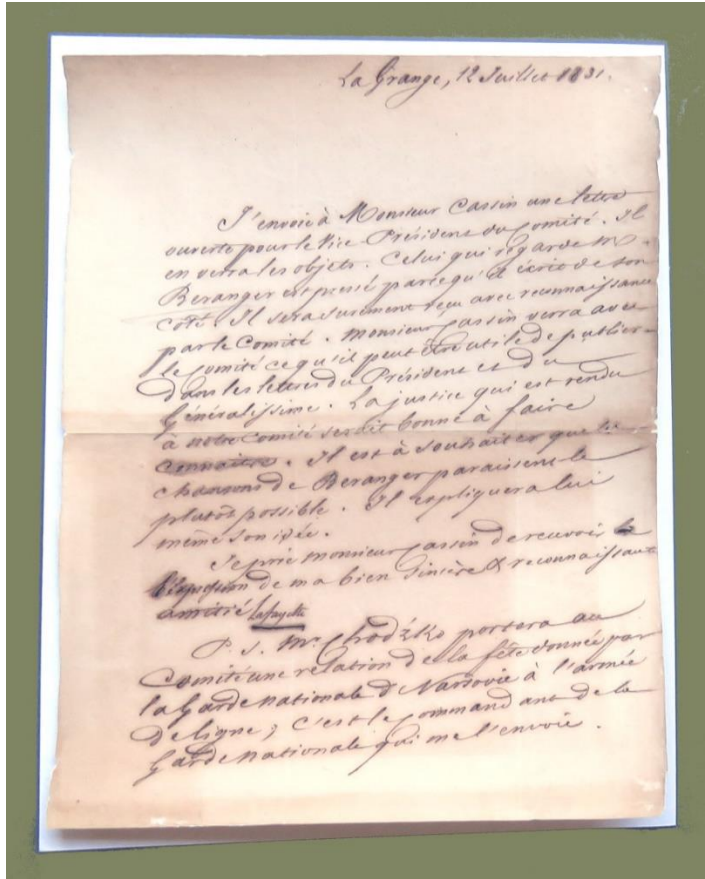 La Grange, 12 Juillet 1831.
J'envoie à Monsieur Cassin une lettre
ouverte pour le Vice Président du Comité. Il
en verra les objets. Celui qui regarde M.
Beranger est pressé parcequ'il écrit de son
coté. Il sera surement reçu avec reconnaissance
par le Comité. Monsieur Cassin verra avec
le Comité ce qu'il peut être utile de publier
dans les lettres du Président et du
Généralissime. La justice qui est rendu
à notre Comité serait bonne à faire
connaitre. Il est à souhaiter que les
chansons de Beranger paraissent le
plutôt possible. Il expliquera lui
même son idée.
Je prie monsieur Cassin de recevoir
l'expression de ma bien sincère & reconnaissante
amitié Lafayette
P. S. Mr. Chodźko portera au
Comité une relation de la fête donnée par
la Garde nationale de Varsovie à l'armée
de ligne; c'est le Commandant de la
Garde nationale qui me l'envoie.